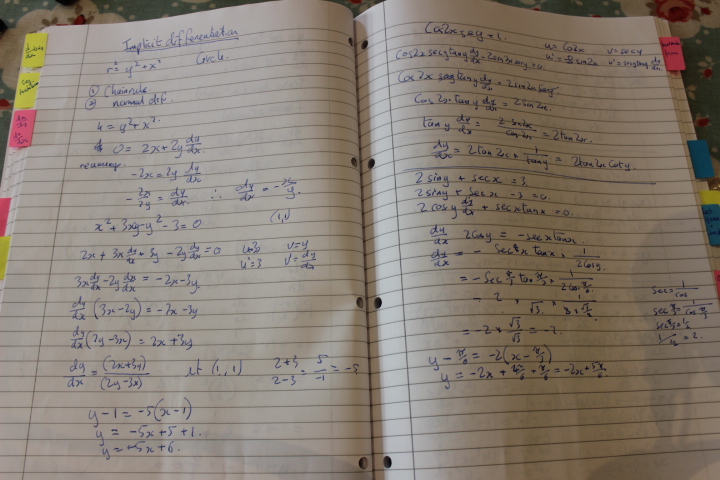 Implicit differentiation
r² = y² + x² Circle.
① Chain rule
② normal dif.
4 = y² + x².
0 = 2x + 2y dy/dx
rearrange
-2x = 2y dy/dx
-2x/2y = dy/dx ∴ dy/dx = -x/y.
x² + 3xy - y² - 3 = 0 (1,1)
2x + 3x dy/dx + 3y - 2y dy/dx = 0 u=3x v=y
u'=3 v'=dy/dx
3x dy/dx - 2y dy/dx = -2x - 3y
dy/dx (3x - 2y) = -2x - 3y
dy/dx (2y - 3x) = 2x + 3y
dy/dx = (2x+3y)/(2y-3x) at (1,1) 2+3/2-3 = 5/-1 = -5
y - 1 = -5(x - 1)
y = -5x + 5 + 1.
y = -5x + 6.
Cos2x secy = 1. u = Cos2x v = secy
Cos2x secy tany dy/dx - 2sin2x secy = 0. u' = -2sin2x v' = secy tany dy/dx
Cos2x secy tany dy/dx = 2sin2x secy
Cos2x tany dy/dx = 2sin2x.
tany dy/dx = 2sin2x/cos2x = 2tan2x.
dy/dx = 2tan2x × 1/tany = 2tan2x coty
2siny + secx = 3.
2siny + secx - 3 = 0.
2cosy dy/dx + secx tanx = 0.
dy/dx 2cosy = -secx tanx
dy/dx = -secx tanx × 1/2cosy.
= -sec π/3 tan π/3 × 1/2cos π/6.
= -2 × √3/√3 = -2.
y - π/6 = -2(x - π/3)
y = -2x + 2π/3 + π/6 = -2x + 5π/6
sec = 1/cos
sec π/3 = 1/cos π/3
1/½ = 2.